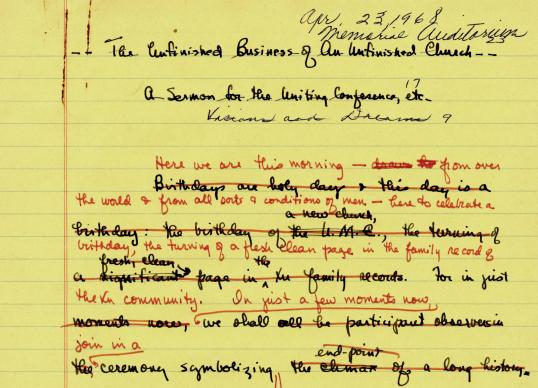 Apr. 23, 1968
Memorial Auditorium
-- The Unfinished Business of An Unfinished Church --
A Sermon for the Uniting Conference, etc.
Visions and Dreams 9
Here we are this morning — from over
Birthdays are holy days & this day is a
the world & from all sorts & conditions of men — here to celebrate a
a new church,
birthday: the birthday of the U.M.C., the turning of
birthday, the turning of a fresh clean page in the family record of
fresh, clean the
a significant page in Xn family records. For in just
the Xn community. In just a few moments now,
moments now, we shall all be participant observers in
join in a
end-point
the ceremony symbolizing the climax of a long history,